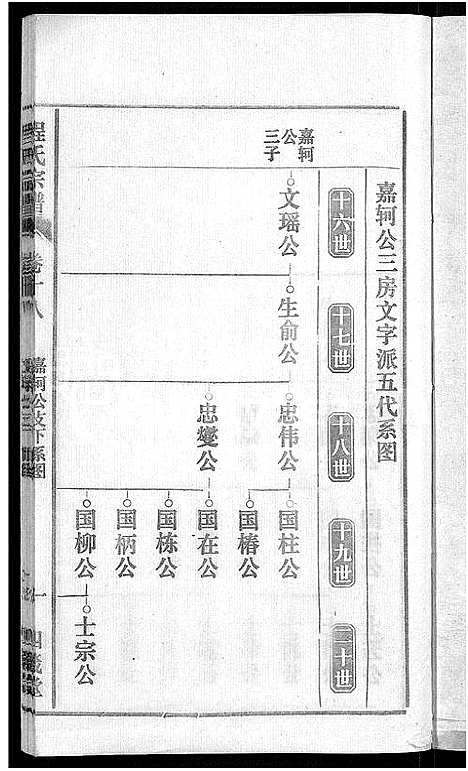 嘉轲公三房文字派五代系图
十六世
十七世
十八世
十九世
二十世
嘉轲
公
三子
文瑶公
生俞公
忠伟公
忠燮公
国柱公
国椿公
国在公
国栋公
国柄公
国柳公
士宗公
程氏宗谱
卷十八
嘉轲公支下系图